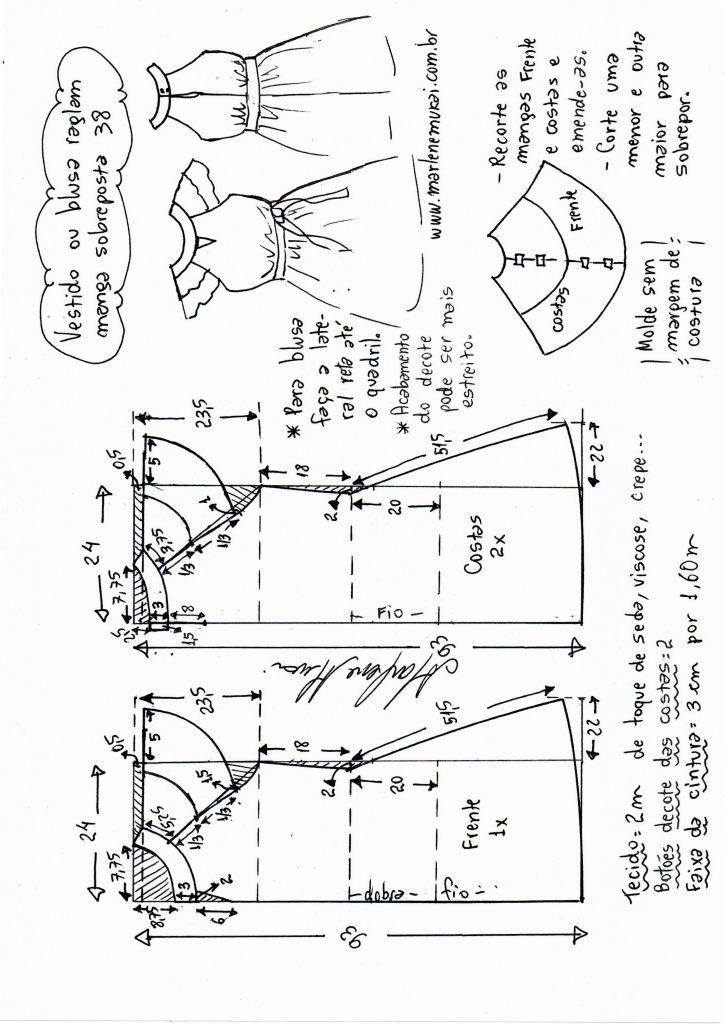 Vestido ou blusa raglam
manga sobreposta 38
www.marlenemukai.com.br
- Recorte as
mangas Frente
e costas e
emende-as.
- Corte uma
menor e outra
maior para
sobrepor.
Frente
costas
Molde sem
margem de
costura
* Para blusa
faça a late-
ral reta até
o quadril.
* Acabamento
do decote
pode ser mais
estreito.
24
7,75
0,5
23,5
5
8,75
3
6
2
5,25
1/3
1/3
1,5
18
2
20
51,5
22
93
Frente
1x
dobra
fio
24
7,75
0,5
23,5
5
2,5
3
1,5
8
3,75
1/3
1/3
1
18
2
20
51,5
22
93
Costas
2x
Fio
Marlene Mukai
Tecido = 2m de toque de seda, viscose, crepe...
Botões decote das costas = 2
Faixa da cintura = 3 cm por 1,60m